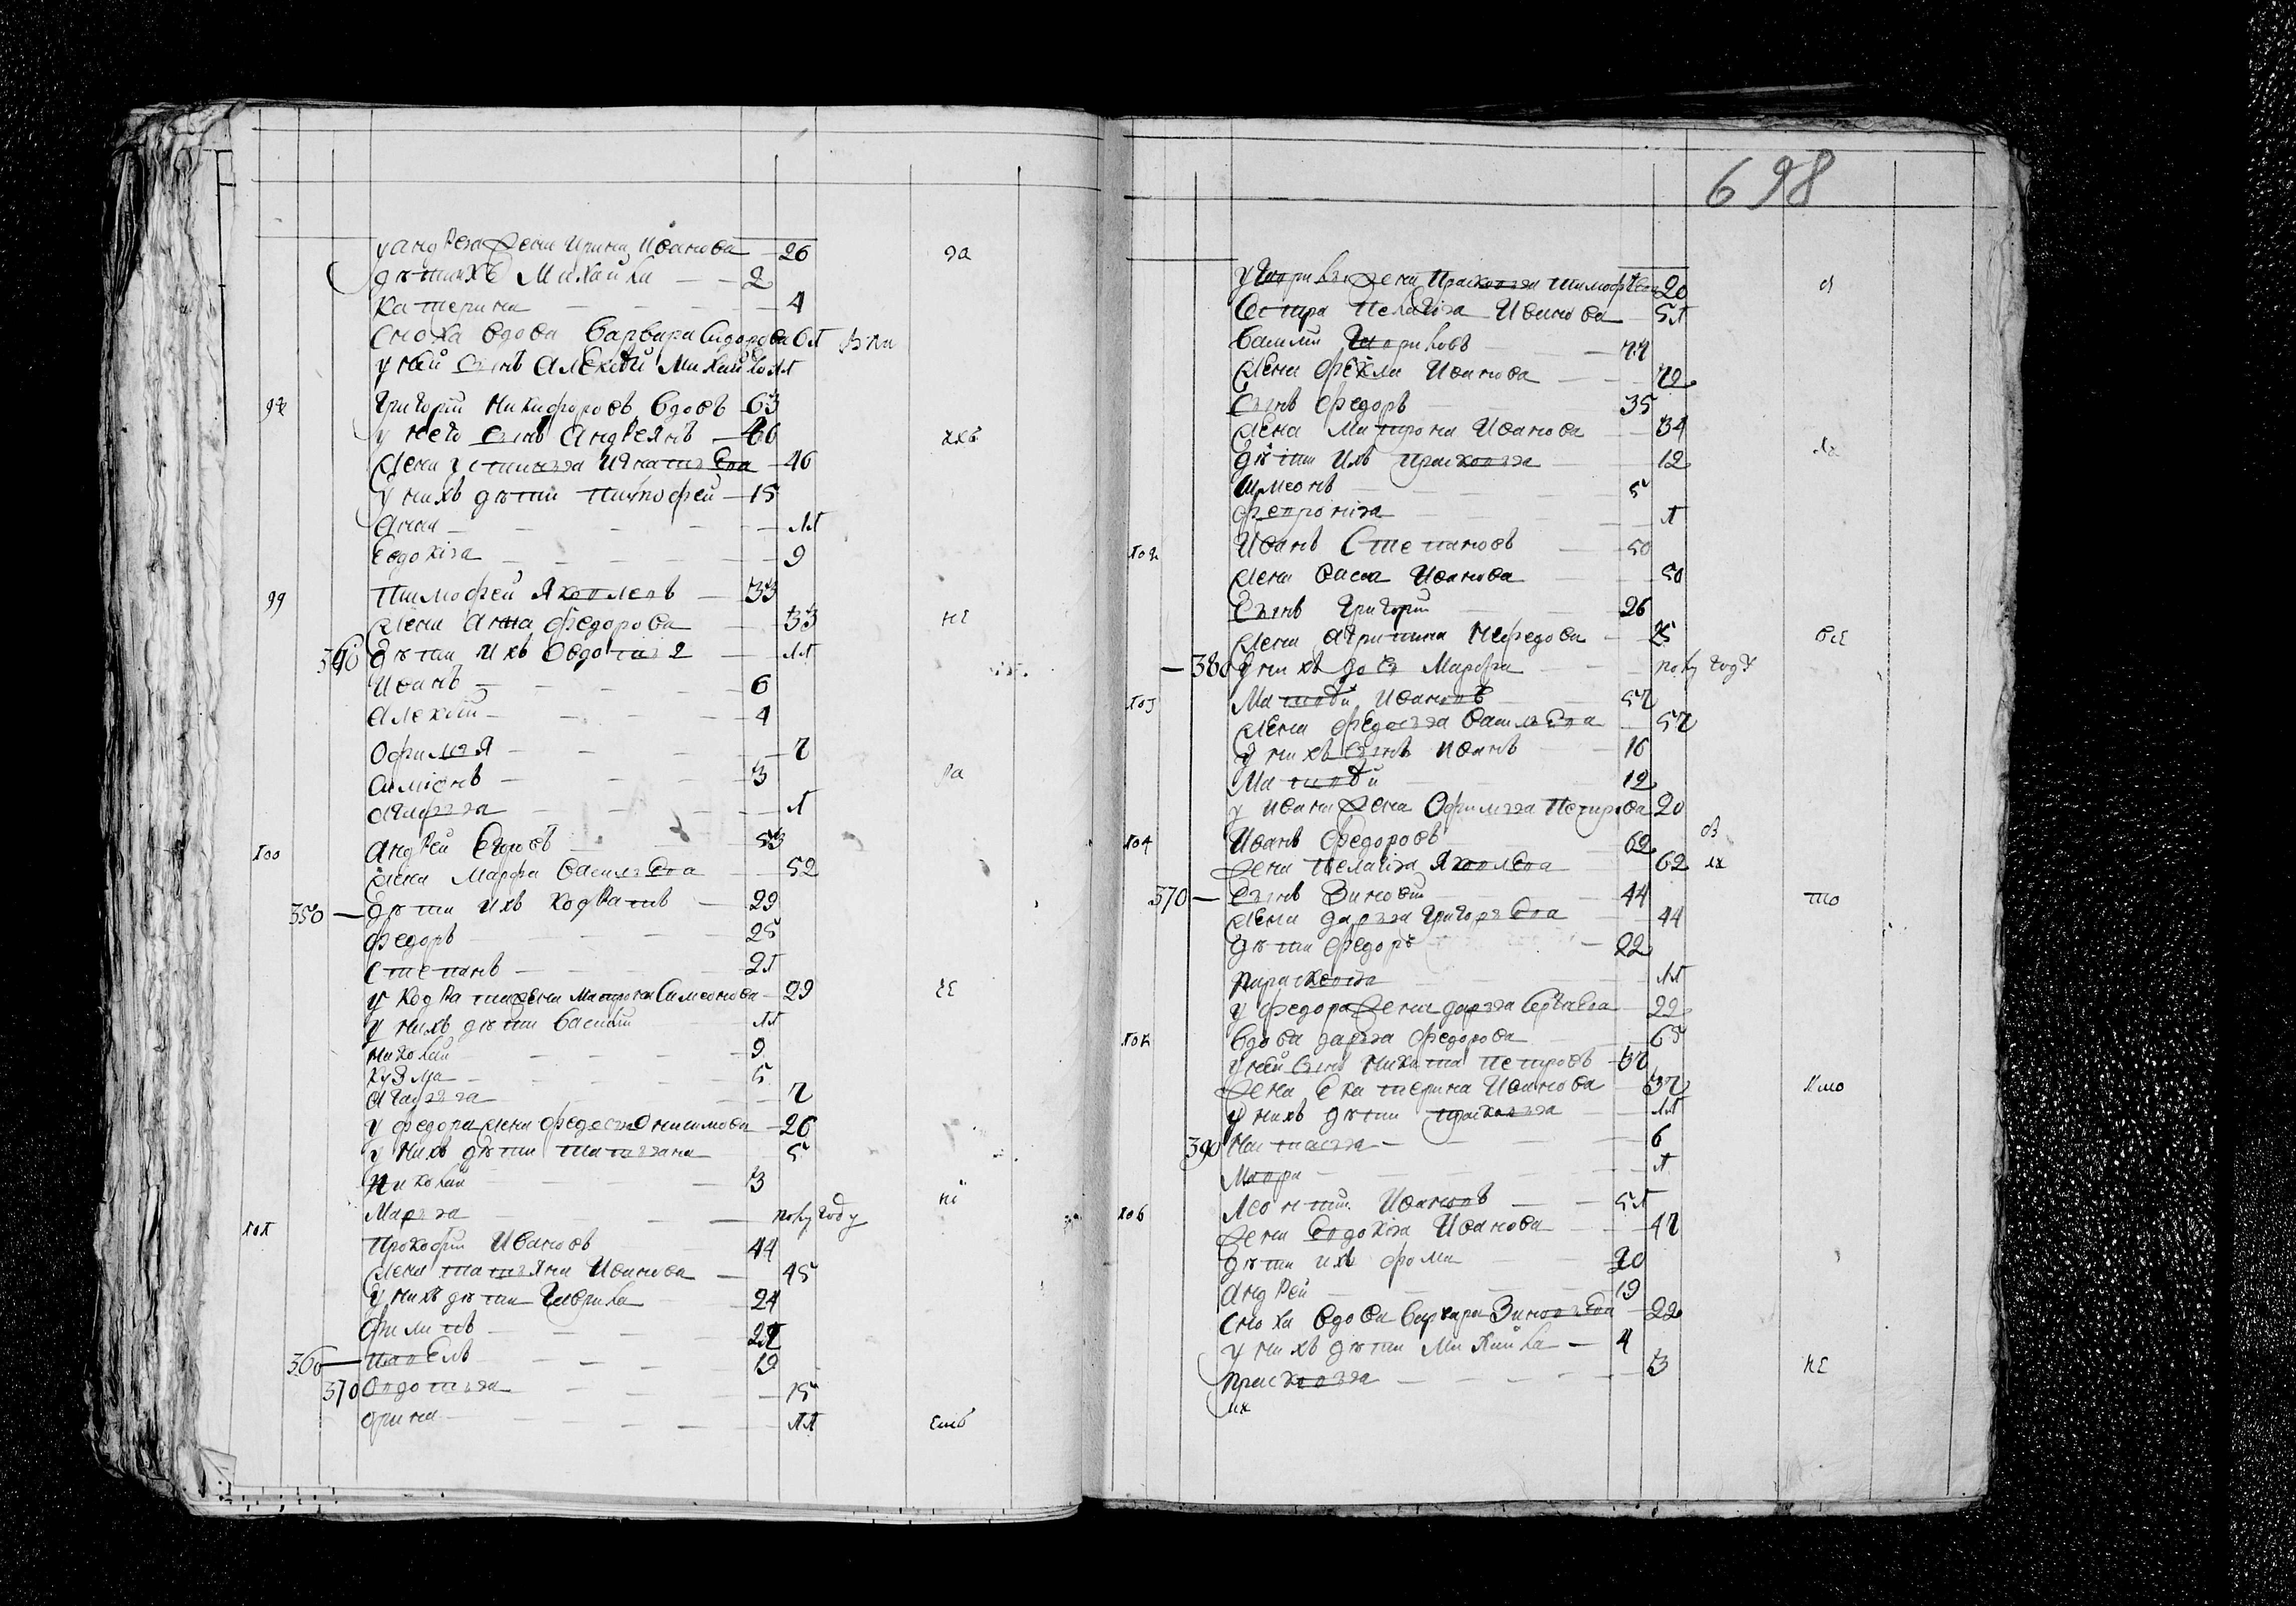 у андрея жена Ирина Иванова 26
дѣти ихъ Михайла 2
Катерина 4
сноха вдова Варвара Сидорова
у ней сынъ Алексѣй Михайлов 11
98 Григорій Никифоровъ вдовъ 63
у него сынъ Андреянъ 46
жена устинья Игнатьева 46
у нихъ дѣти тимофей 15
Анна 11
Евдокія 9
99 Тимофей Яковлевъ 33
жена Анна Федорова 33
дѣти ихъ Овдотья 11
Иванъ 6
Алексѣй 4
Офимья 7
Симіонъ 3
1
100 Андрей Егоровъ 53
жена Марфа Васильева 52
350 дѣти ихъ Кодратъ 29
Федоръ 25
Степанъ 21
у Кодрата жена Матрона Симеонова 29
у нихъ дѣти Василій 11
Николай 9
Кузма 5
7
у федора жена федосья Онисимова 26
у нихъ дѣти татьяна 5
Николай 3
Марья полугоду
101 Прокофій Ивановъ 44
жена татьяна Иванова 45
у нихъ дѣти Гаврила 24
Филипъ
360 Павелъ 19
370 Овдотья 15
Орина 11
698
у Гаврилы жена Прасковья тимофѣева 20
Сестра Пелагія Иванова 51
Василій Гавриловъ
жена Фекла Иванова
сынъ Федоръ 35
жена Матрона Иванова 34
дѣти ихъ прасковья 12
Симеонъ 5
Февронія 1
102 Иванъ Степановъ 50
жена Васса Иванова 50
сынъ Григорій 26
жена Агрипина Нефедова 25
380 у нихъ дочь Марфа полу году
103 Матвѣй Ивановъ 57
жена федосья Васильева 57
у нихъ сынъ Иванъ 16
Матвѣй 12
у ивана жена Офимья Петрова 20
104 Иванъ Федоровъ 62
жена Пелагія Яковлева 62
370 сынъ Зиновій 44
жена дарья Григорьева 44
дѣти Федоръ 22
Параскевія 11
у федора жена дарья Сергѣева 22
105 вдова дарья Федорова 65
у ней сынъ Никита Петровъ 37
жена Екатерина Иванова 37
у нихъ дѣти прасковья 11
390 Настасья 6
Мавра 1
106 Леонтій Ивановъ 51
жена Евдокія Иванова 47
дѣти ихъ фома 20
Андрей 19
сноха вдова Варвара Зиновьева 22
у нихъ дѣти Михайла 4
прасковья 3